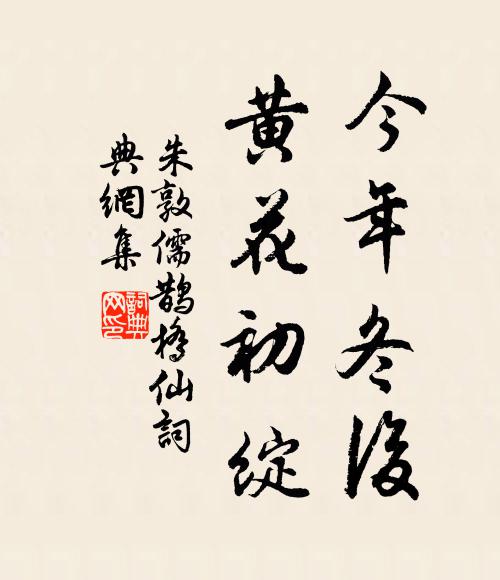 今年冬後
黄花初綻
朱敦儒鵲橋仙詞
典網集
詞典网印